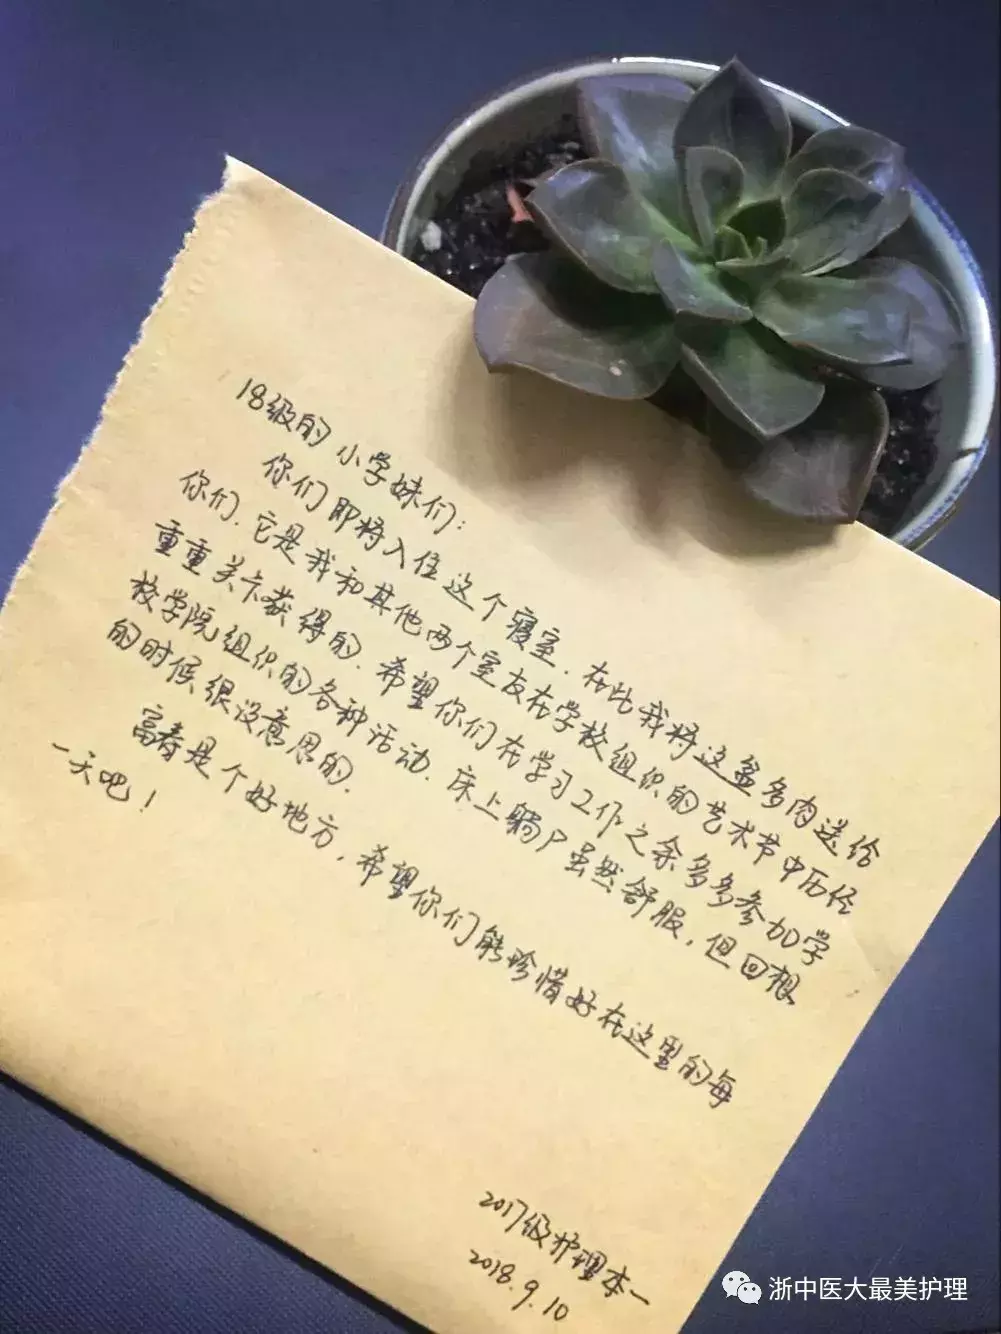 18级的小学妹们：
你们即将入住这个寝室.在此我将这盆多肉送给
你们.它是我和其他两个室友在学校组织的艺术节中历经
重重关卡获得的.希望你们在学习工作之余多多参加学
校学院组织的各种活动.床上躺尸虽然舒服,但回想
的时候很没意思的.
富春是个好地方,希望你们能珍惜好在这里的每
一天吧!
2017级护理本一
2018.9.10
浙中医大最美护理